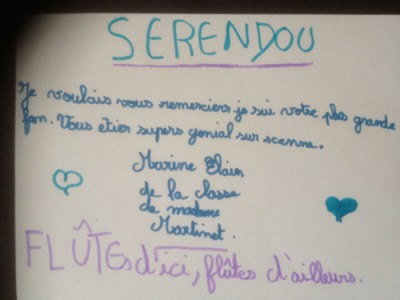 SERENDOU
Je voulais vous remerciers je sui votre plus grande
fan. Vous etier supers genial sur scenne.
Marine Elain
de la classe
de madame
Martinet.
FLÛTEs d'ici, flûtes d'ailleurs.